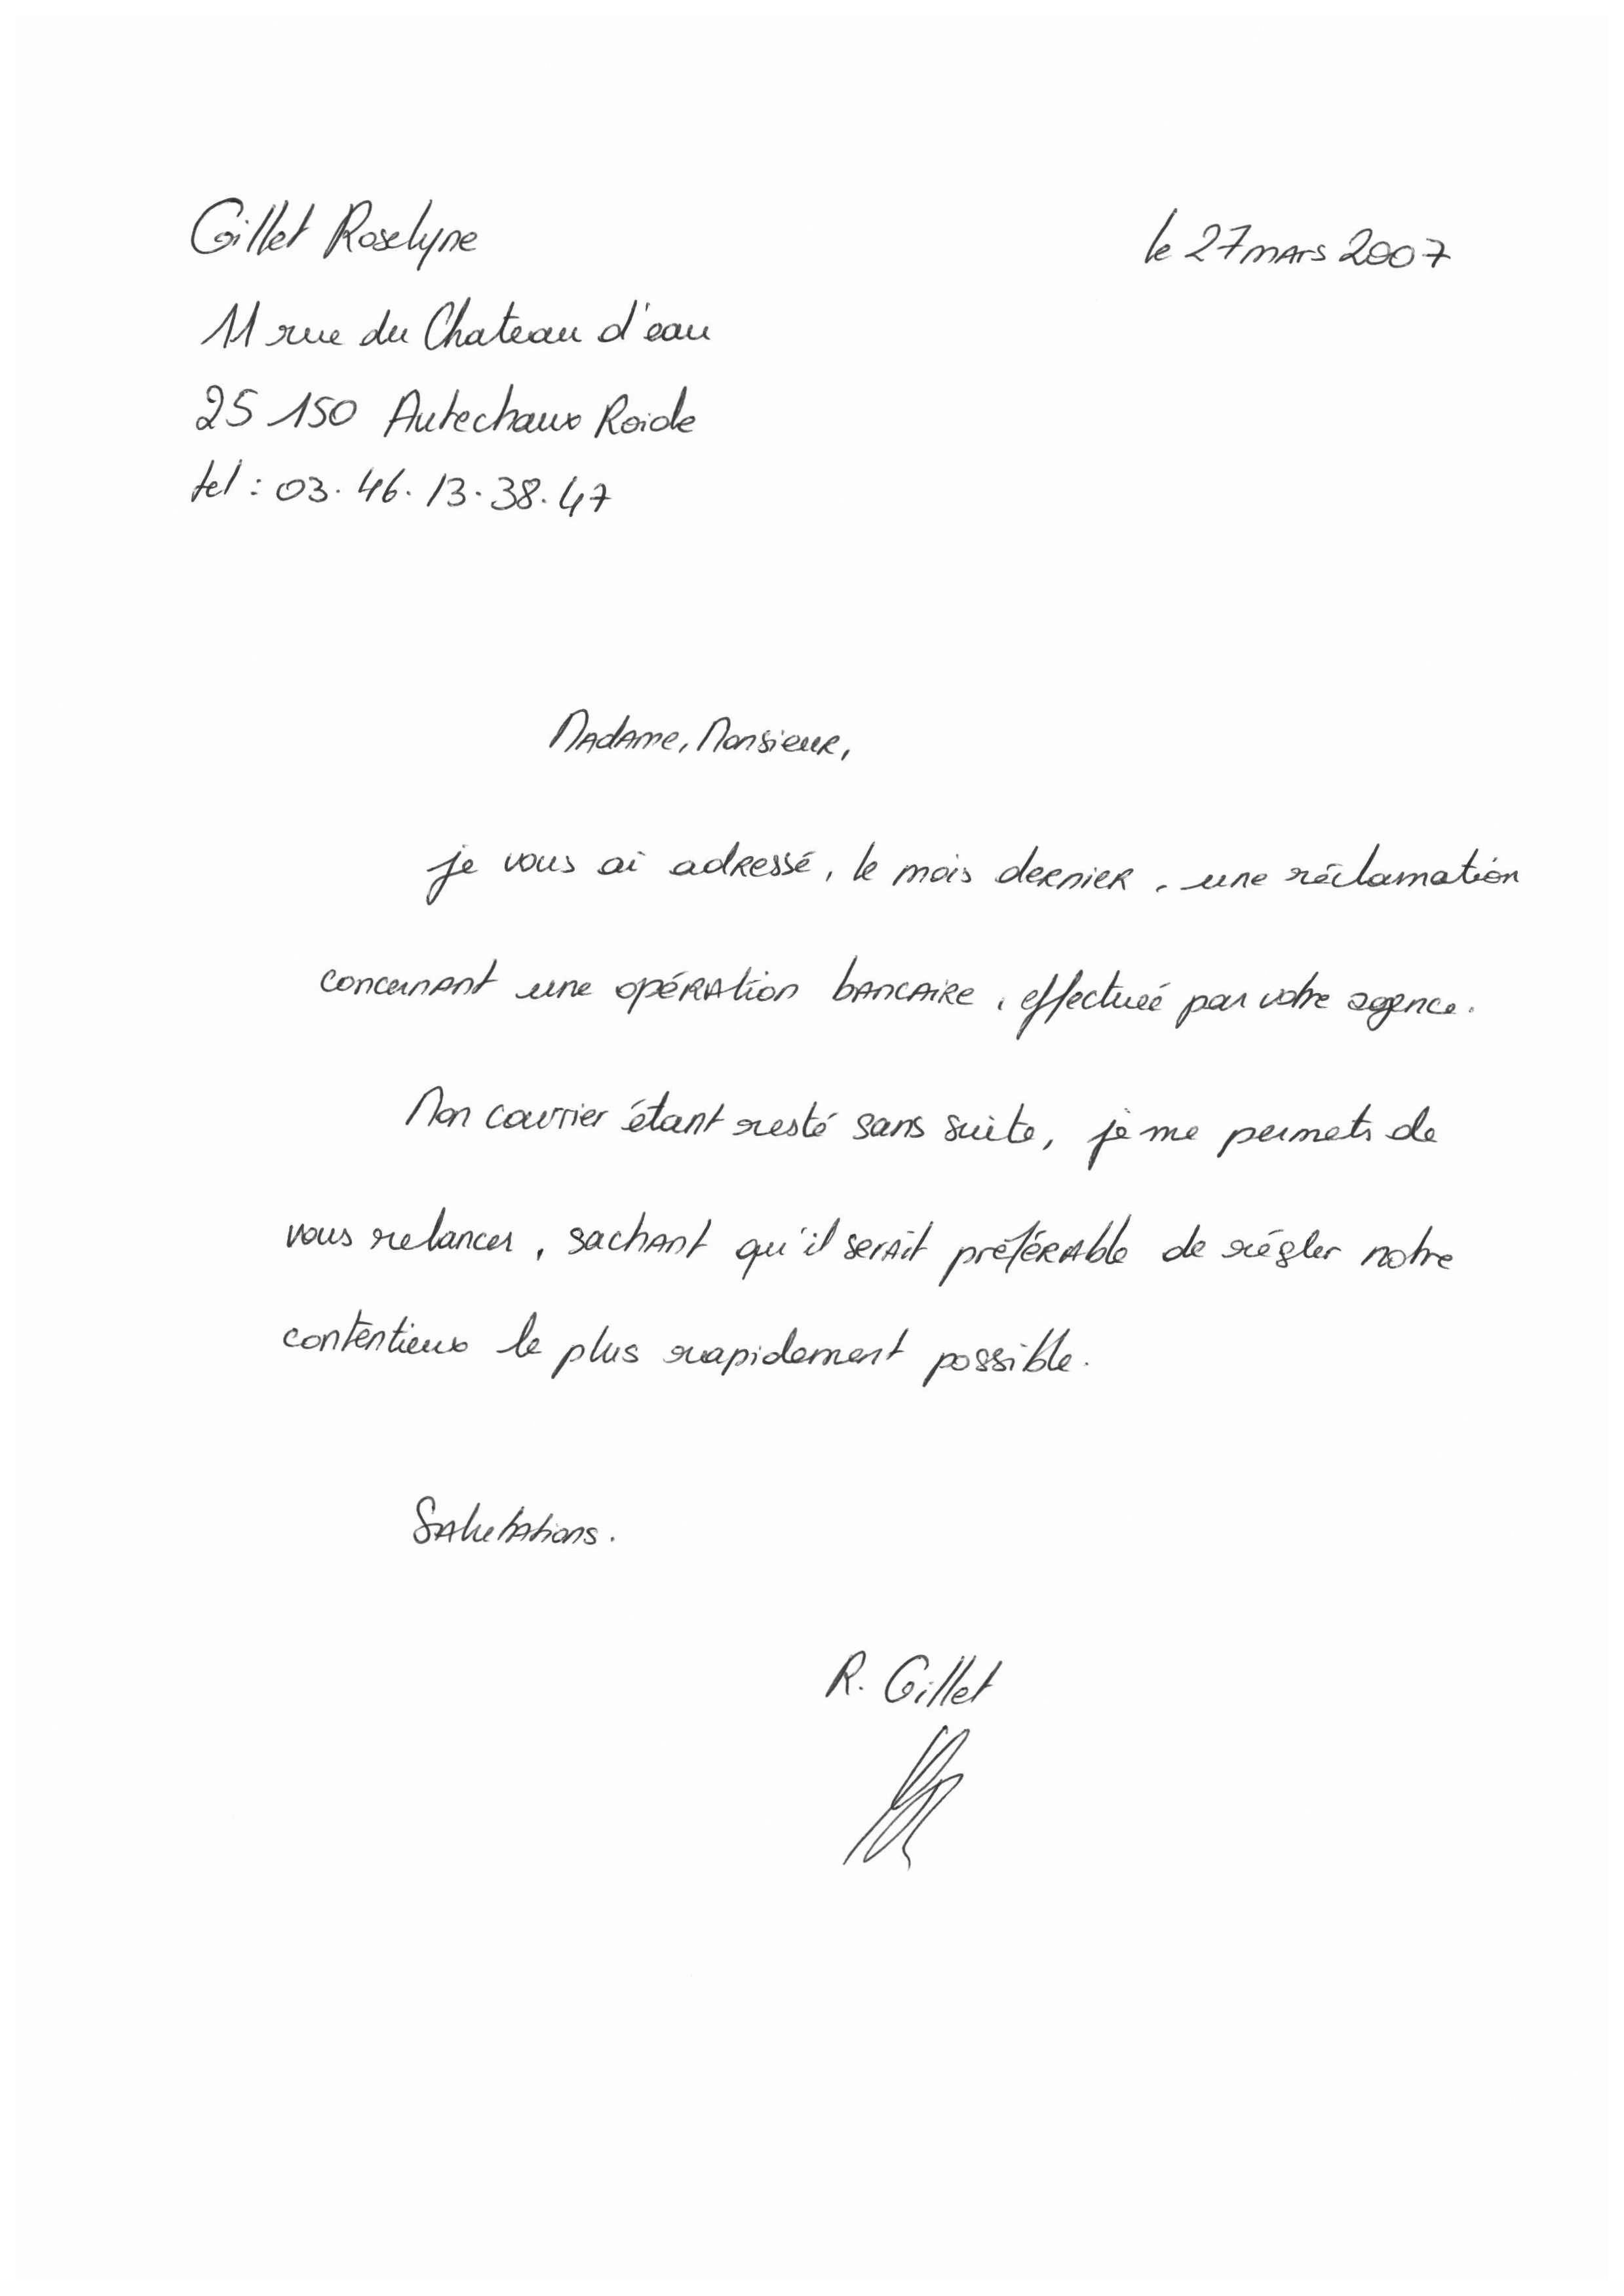 Gillet Roselyne
le 27 mars 2007
11 rue du Chateau d'eau
25 150 Autechaux Roide
tel : 03. 46. 13. 38. 47
Madame, Monsieur,
je vous ai adressé, le mois dernier, une réclamation
concernant une opération bancaire, effectueé par votre agence.
Mon courrier étant resté sans suite, je me permets de
vous relancer, sachant qu'il serait préférable de régler notre
contentieux le plus rapidement possible.
Salutations.
R. Gillet